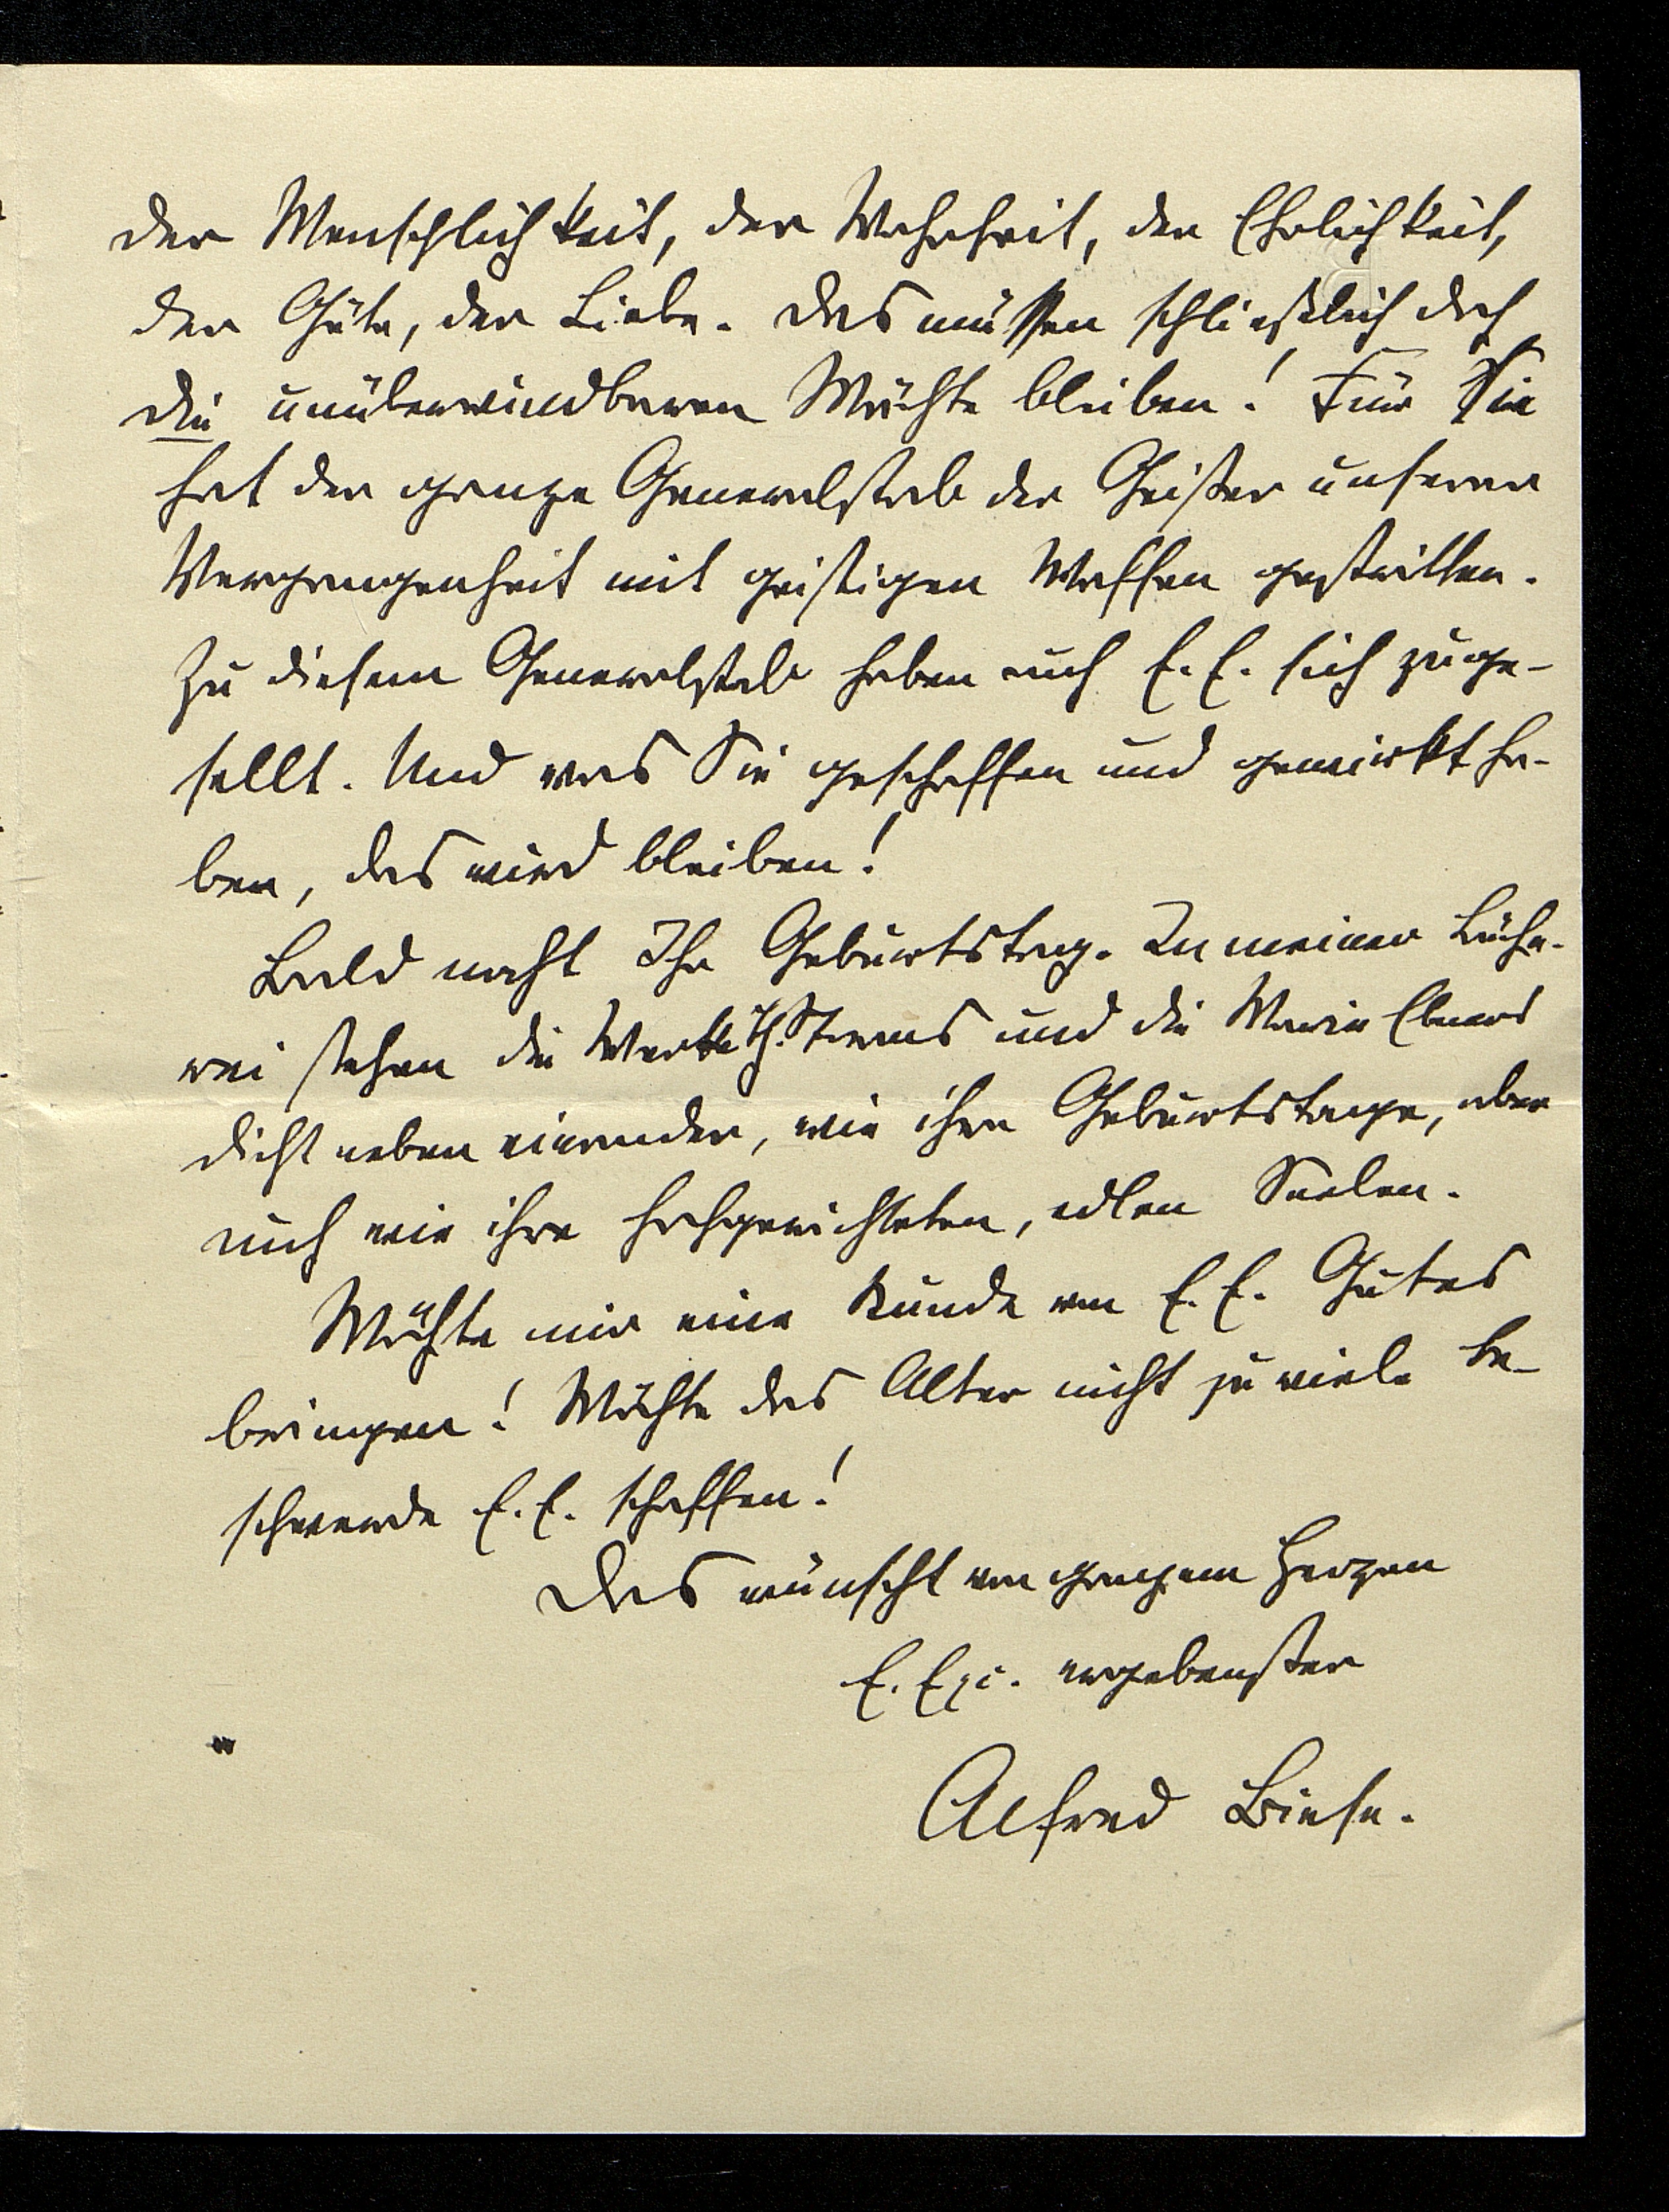 der Menschlichkeit, der Wahrheit, der Ehrlichkeit,
der Güte, der Liebe. Das müssen schließlich doch
die unüberwindbaren Mächte bleiben! Für Sie
hat der ganze Generalstab der Geister unserer
Vergangenheit mit geistigen Waffen gestritten.
Zu diesem Generalstab haben auch E. E. sich zuge-
sellt. Und was Sie geschaffen und gewirkt ha-
ben, das wird bleiben!
Bald naht Ihr Geburtstag. In meiner Büche-
rei stehen die Werke Th. Storms und die Marie Ebners
dicht neben einander, wie ihre Geburtstage, aber
auch wie ihre hochgerichteten, edlen Seelen.
Möchte mir eine Kunde von E. E. Gutes
bringen! Möchte das Alter nicht zu viele Be-
schwerde E. E. schaffen!
Das wünscht von ganzem Herzen
E. Exc. ergebenster
Alfred Biese.